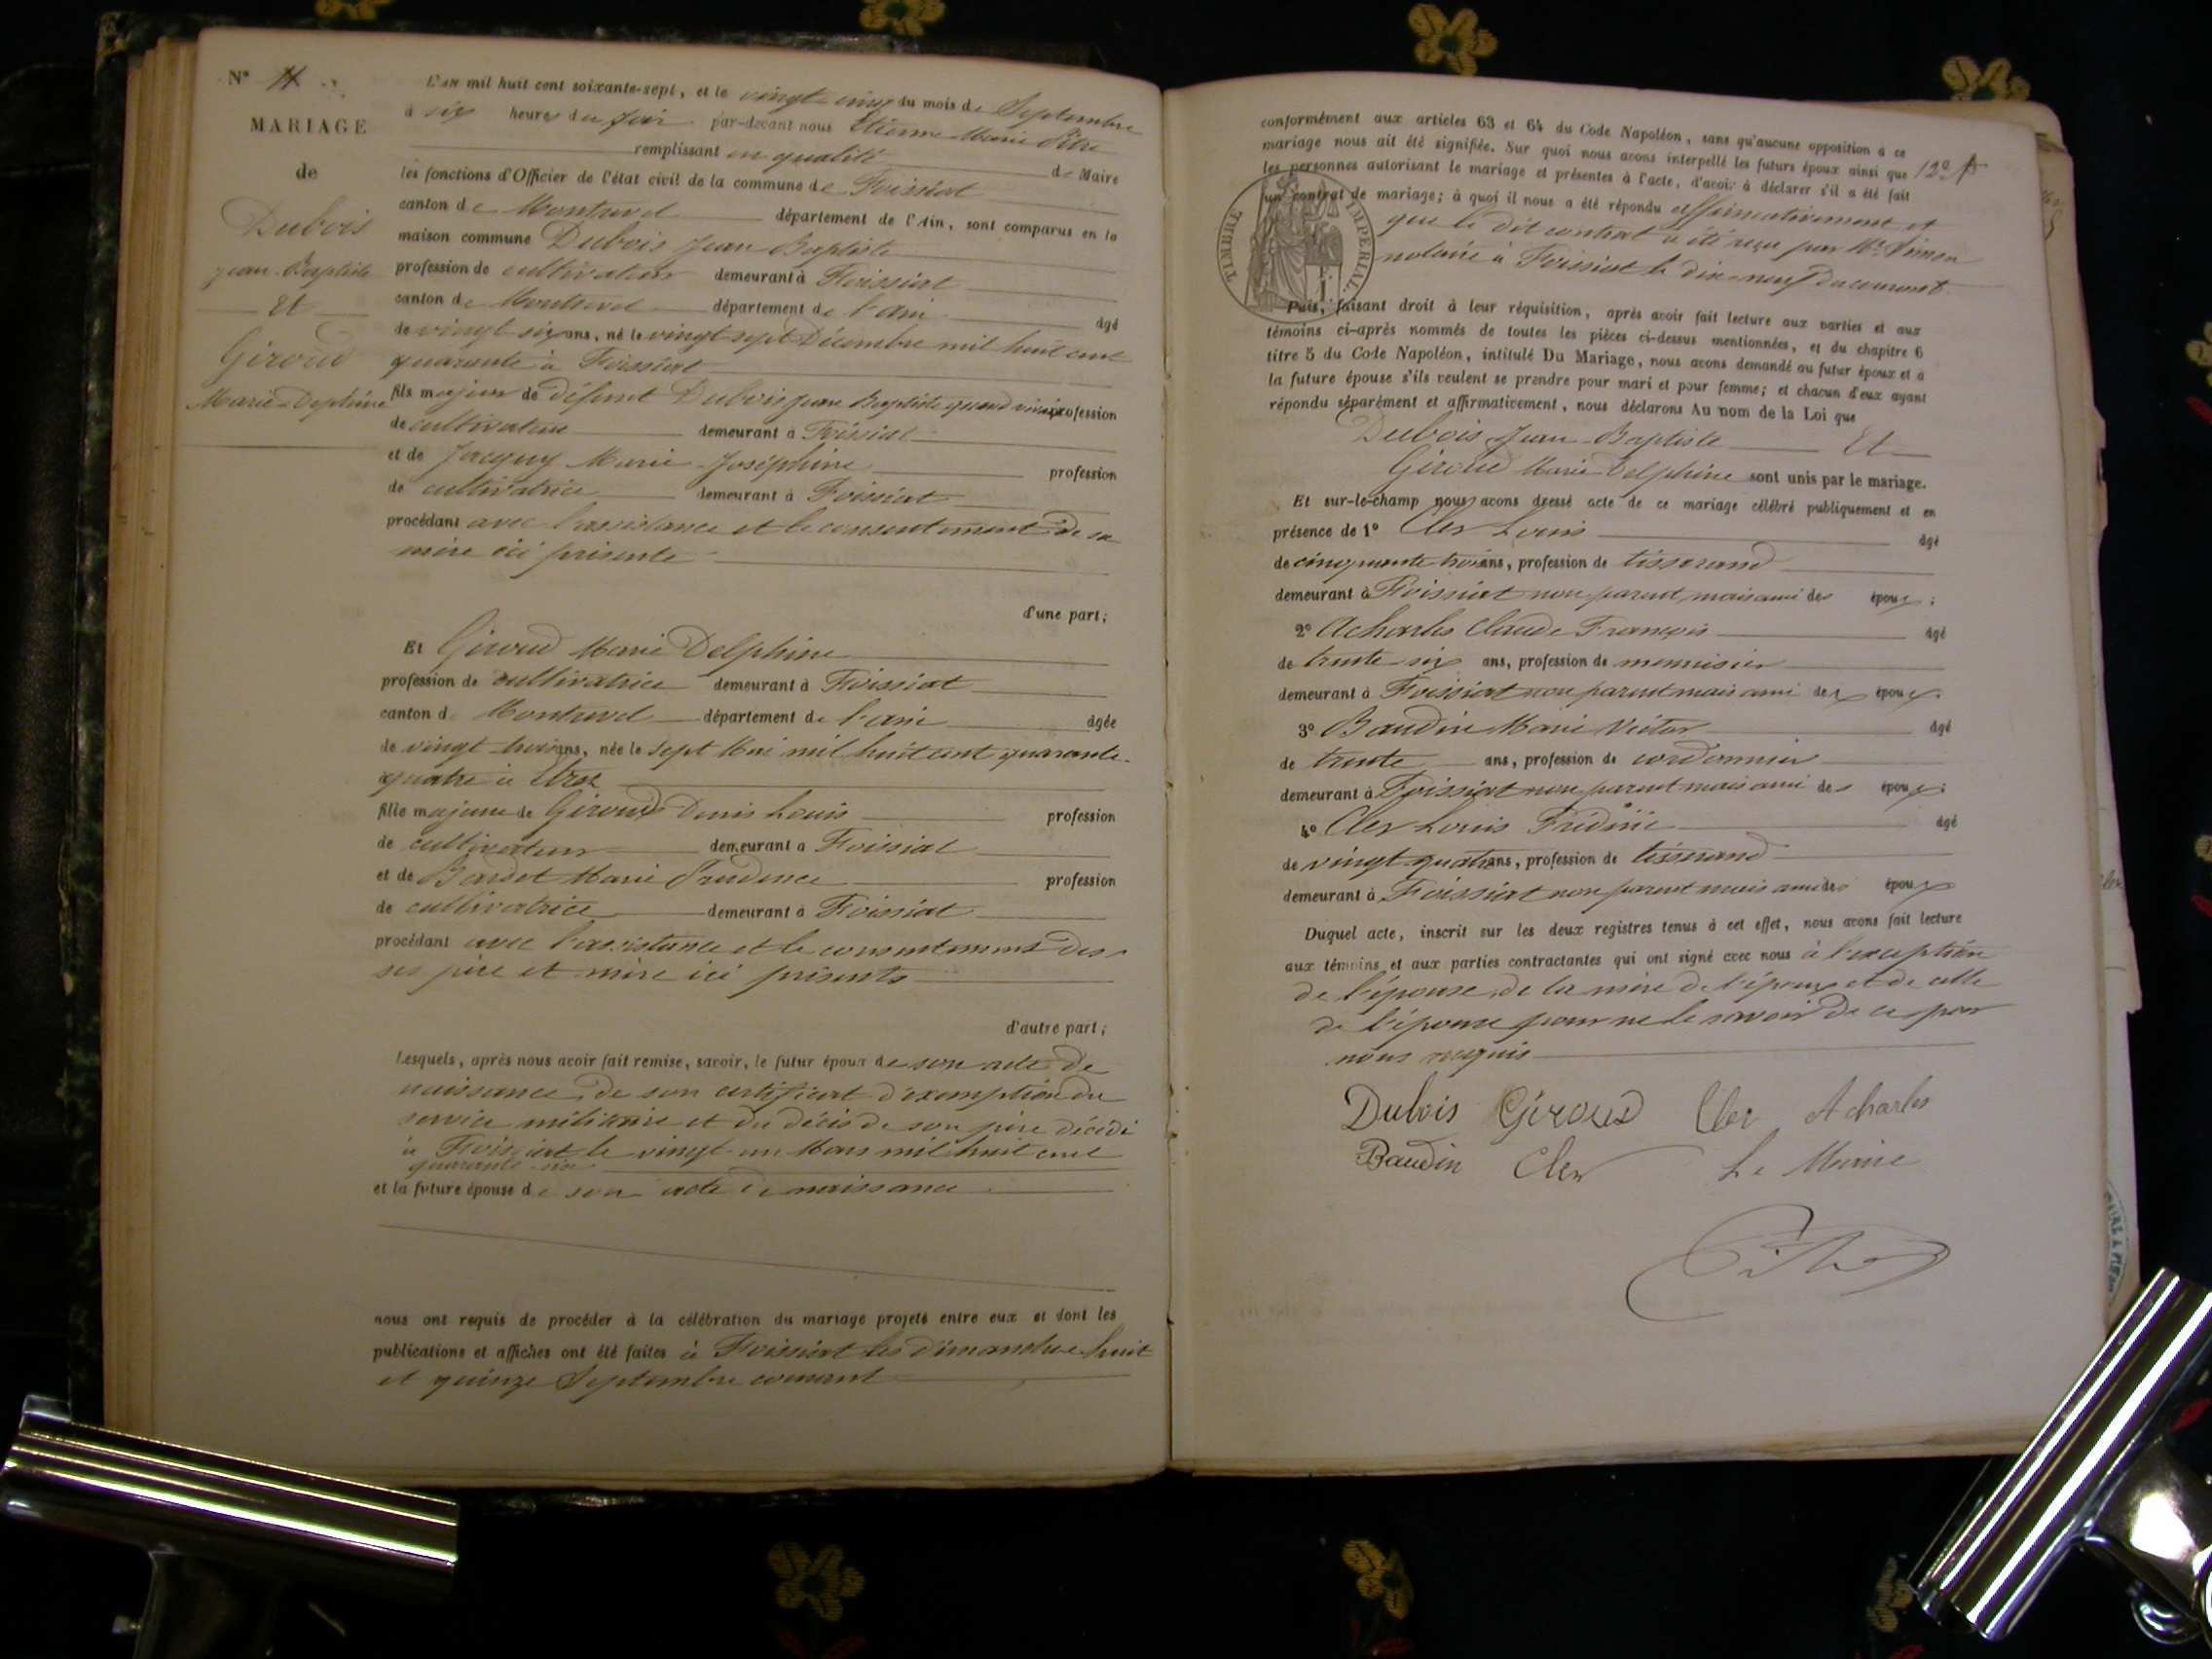 N° 11
MARIAGE
de
Dubois
Jean Baptiste
Et
Giroud
Marie-Delphine
L'an mil huit cent soixante-sept, et le vingt-cinq du mois de Septembre
à six heures du soir par-devant nous Etienne Marie Pitre
remplissant en qualité de Maire
les fonctions d'Officier de l'état civil de la commune de Foissiat
canton de Montrevel département de l'Ain, sont comparus en la
maison commune Dubois Jean Baptiste
profession de cultivateur demeurant à Foissiat
canton de Montrevel département de l'ain âgé
de vingt six ans, né le vingt sept Décembre mil huit cent
quarante à Foissiat
fils majeur de défunt Dubois Jean Baptiste quand vivait profession
de cultivateur demeurant à Foissiat
et de Jacquy Marie Joséphine profession
de cultivatrice demeurant à Foissiat
procédant avec l'assistance et le consentement de sa
mère ici présente
d'une part;
Et Giroud Marie Delphine
profession de cultivatrice demeurant à Foissiat
canton de Montrevel département de l'ain âgée
de vingt trois ans, née le sept Mai mil huit cent quarante-
quatre à Etrez
fille majeure de Giroud Denis Louis profession
de cultivateur demeurant à Foissiat
et de Bardet Marie Prudence profession
de cultivatrice demeurant à Foissiat
procédant avec l'assistance et le consentement des
ses père et mère ici présents
d'autre part;
Lesquels, après nous avoir fait remise, savoir, le futur époux de son acte de
naissance, de son certificat d'exemption du
service militaire et du décès de son père décédé
à Foissiat le vingt-un Mars mil huit cent
quarante-six
et la future épouse de son acte de naissance
nous ont requis de procéder à la célébration du mariage projeté entre eux et dont les
publications et affiches ont été faites à Foissiat les dimanches huit
et quinze Septembre courant
conformément aux articles 63 et 64 du Code Napoléon, sans qu'aucune opposition à ce
mariage nous ait été signifiée. Sur quoi nous avons interpellé les futurs époux ainsi que
les personnes autorisant le mariage et présentes à l'acte, d'avoir à déclarer s'il a été fait
un contrat de mariage; à quoi il nous a été répondu affirmativement et
que le dit contrat a été reçu par Me
notaire à Foissiat le dix-neuf du courant
TIMBRE IMPERIAL
Puis, faisant droit à leur réquisition, après avoir fait lecture aux parties et aux
témoins ci-après nommés de toutes les pièces ci-dessus mentionnées, et du chapitre 6
titre 5 du Code Napoléon, intitulé Du Mariage, nous avons demandé au futur époux et à
la future épouse s'ils veulent se prendre pour mari et pour femme; et chacun d'eux ayant
répondu séparément et affirmativement, nous déclarons Au nom de la Loi que
Dubois Jean-Baptiste Et
Giroud Marie Delphine sont unis par le mariage.
Et sur-le-champ nous avons dressé acte de ce mariage célébré publiquement et en
présence de 1° Cler Louis âgé
de cinquante trois ans, profession de tisserand
demeurant à Foissiat non parent mais ami des époux;
2° Acharles Claude François âgé
de trente-six ans, profession de menuisier
demeurant à Foissiat non parent mais ami des époux.
3° Baudin Marie Victor âgé
de trente ans, profession de cordonnier
demeurant à Foissiat non parent mais ami des époux;
4° Cler Louis Frédéric âgé
de vingt-quatre ans, profession de tisserand
demeurant à Foissiat non parent mais ami des époux
Duquel acte, inscrit sur les deux registres tenus à cet effet, nous avons fait lecture
aux témoins et aux parties contractantes qui ont signé avec nous à l'exception
de l'épouse, de la mère de l'époux et de celle
de l'épouse pour ne le savoir de ce par
nous requis
Dubois Giroud Cler Acharles
Baudin Cler Le Maire
Pitre